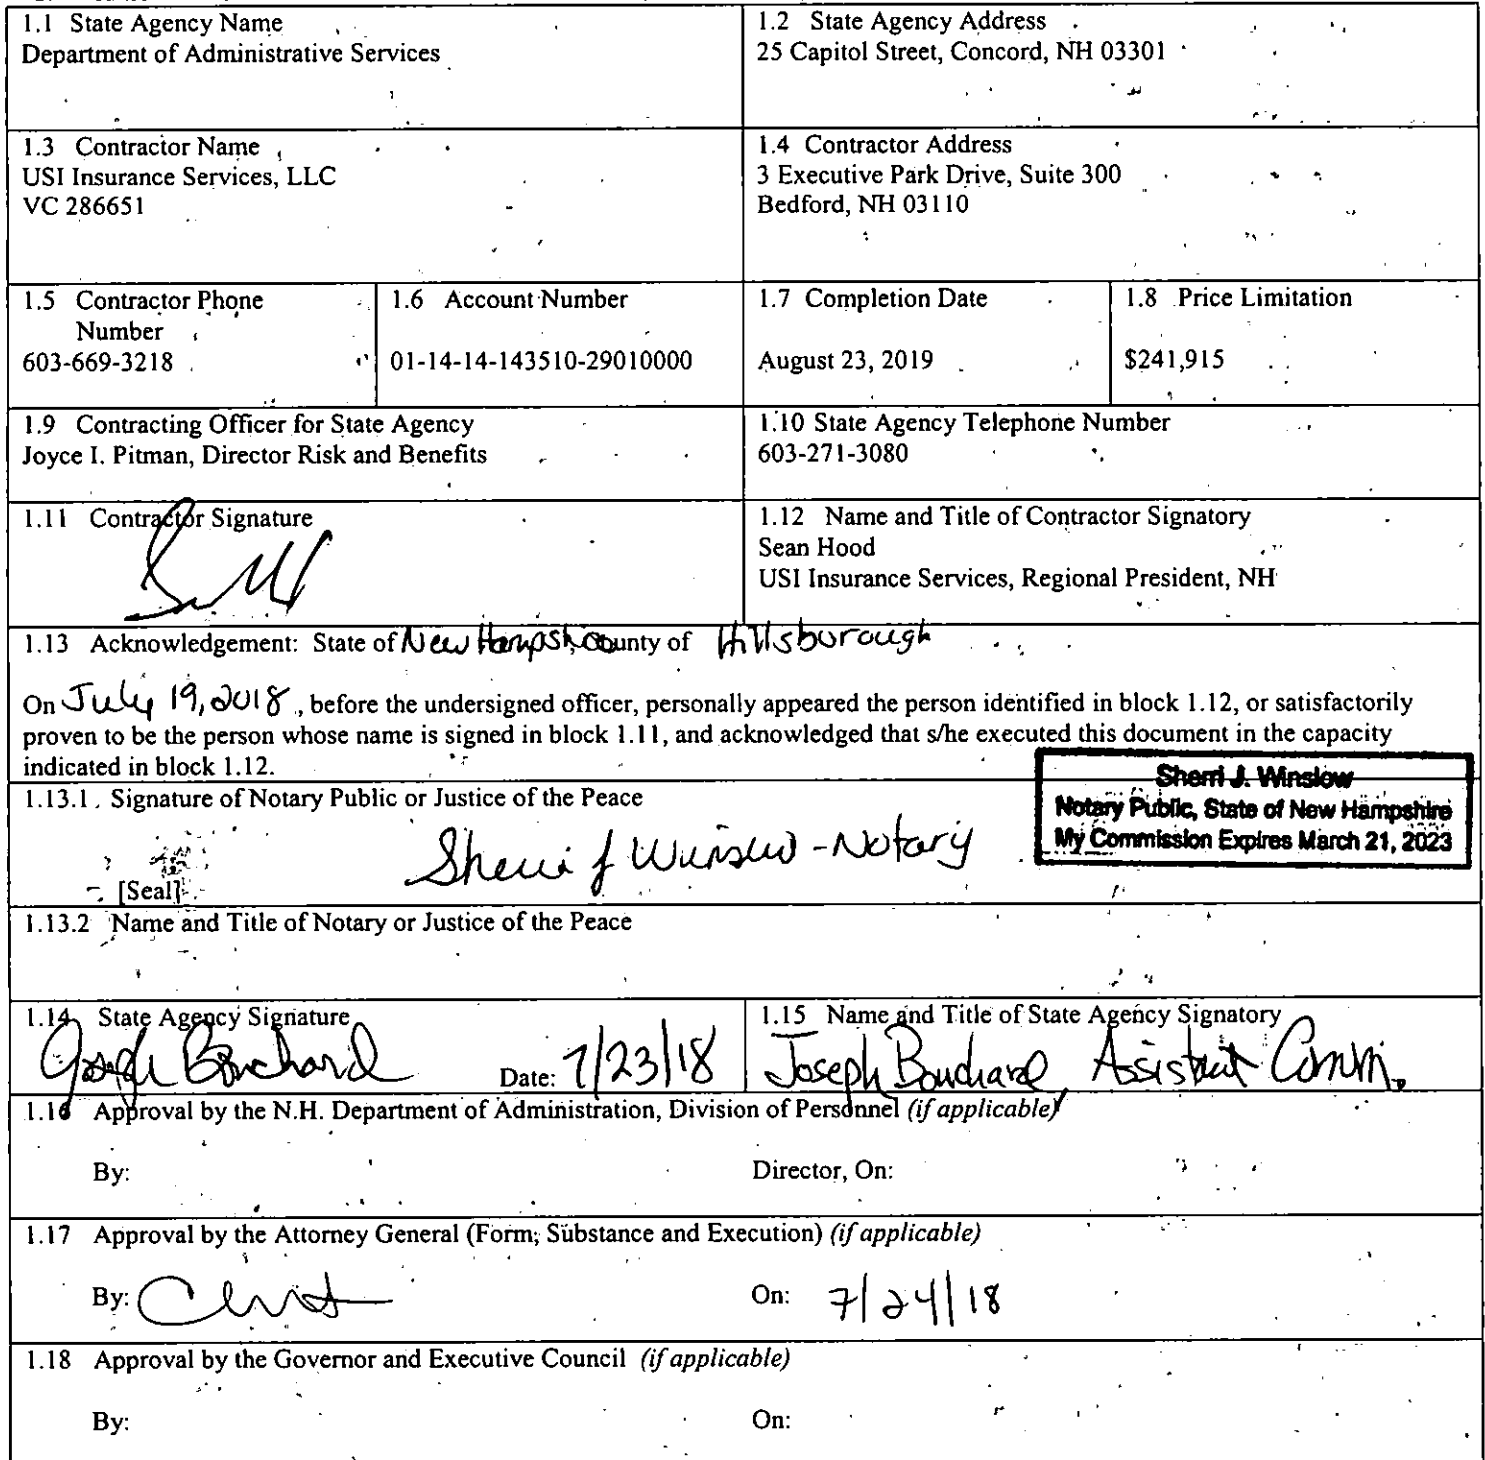 1.1 State Agency Name
Department of Administrative Services
1.2 State Agency Address
25 Capitol Street, Concord, NH 03301
1.3 Contractor Name
USI Insurance Services, LLC
VC 286651
1.4 Contractor Address
3 Executive Park Drive, Suite 300
Bedford, NH 03110
1.5 Contractor Phone
Number
603-669-3218
1.6 Account Number
01-14-14-143510-29010000
1.7 Completion Date
August 23, 2019
1.8 Price Limitation
$241,915
1.9 Contracting Officer for State Agency
Joyce I. Pitman, Director Risk and Benefits
1.10 State Agency Telephone Number
603-271-3080
1.11 Contractor Signature
1.12 Name and Title of Contractor Signatory
Sean Hood
USI Insurance Services, Regional President, NH
1.13 Acknowledgement: State of New Hampsh, County of Hillsborough
On July 19, 2018, before the undersigned officer, personally appeared the person identified in block 1.12, or satisfactorily
proven to be the person whose name is signed in block 1.11, and acknowledged that s/he executed this document in the capacity
indicated in block 1.12.
Sherri J. Winslow
Notary Public, State of New Hampshire
My Commission Expires March 21, 2023
1.13.1 Signature of Notary Public or Justice of the Peace
Sherri J Winslow - Notary
[Seal]
1.13.2 Name and Title of Notary or Justice of the Peace
1.14 State Agency Signature
Joseph Bouchard Date: 7/23/18
1.15 Name and Title of State Agency Signatory
Joseph Bouchard, Assistant Comm.
1.16 Approval by the N.H. Department of Administration, Division of Personnel (if applicable)
By: Director, On:
1.17 Approval by the Attorney General (Form, Substance and Execution) (if applicable)
By: On: 7/24/18
1.18 Approval by the Governor and Executive Council (if applicable)
By: On: